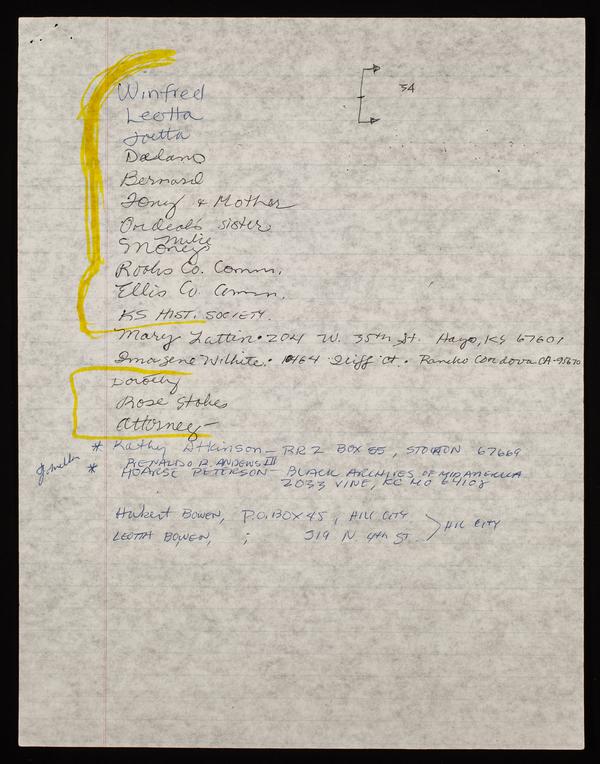 34
Winfred
Leotta
Joetta
Dolano
Bernard
Tony & Mother
Ordeal's sister
Millie
Moneys
Rooks Co. Comm.
Ellis Co. Comm.
KS HIST. SOCIETY.
Mary Lattin • 204 W. 35th St. Hays, KS 67601
Imogene Wilhite • 10464 Iliff Ct. Rancho Cordova CA-95670
Dorothy
Rose Stokes
Attorney —
* Kathy Atkinson — RR 2 BOX 55, STOCKTON 67669
RENALDO R. ANDEWS III
* HOARSE PETERSON — BLACK ARCHIVES OF MID AMERICA
2033 VINE, KC MO 64108
Hubert BOWEN, P.O. BOX 45, HILL CITY
LEOTTA BOWEN, ; 319 N. 4th ST. HILL CITY